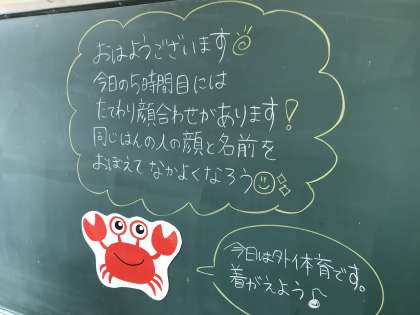 おはようございます
今日の5時間目には
たてわり顔合わせがあります!
同じはんの人の顔と名前を
おぼえてなかよくなろう
今日は外体育です。
着がえよう♪